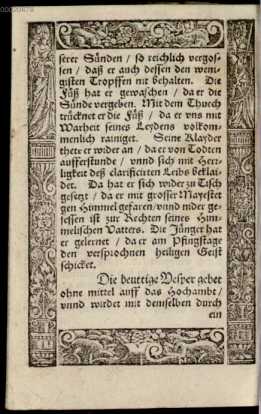 serer Sünden / so reichlich vergos-
sen / daß er auch dessen den weni-
gisten Tropffen nit behalten. Die
Füß hat er gewaschen / da er die
Sünde vergeben. Mit dem Thuech
trücknet er die Füß / da er vns mit
Warheit seines Leydens volkom-
menlich rainiget. Seine Klayder
thete er wider an / da er von Todten
aufferstunde / vnnd sich mit Herr-
ligkeit deß clarificirten Leibs beklai-
det. Da hat er sich wider zu Tisch
gesetzt / da er mit grosser Mayestet
gen Himmel gefaren / vnnd nider ge-
sessen ist zur Rechten seines Him-
melischen Vatters. Die Jünger hat
er gelernet / da er am Pfingstage
den versprochnen heiligen Geist
schicket.
Die heuttige Vesper gehet
ohne mittel auff das Hochambt /
vnnd wirdet mit demselben durch
ein